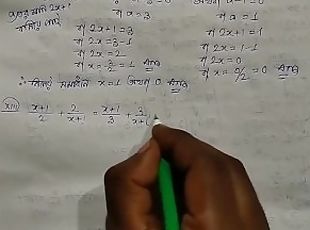 2x+1
বা a = 3
বা 2x+1 = 3
বা 2x = 3-1
বা 2x = 2
বা x = 2/2 = 1 Ans
বা a = 1
বা 2x+1 = 1
বা 2x = 1-1
বা 2x = 0
বা x = 0/2 = 0 Ans
∴ নির্ণেয় সমাধান x = 1 অথবা 0 Ans
(xiii) x+1/2 + 2/x+1 = x+1/3 + 3/x+1